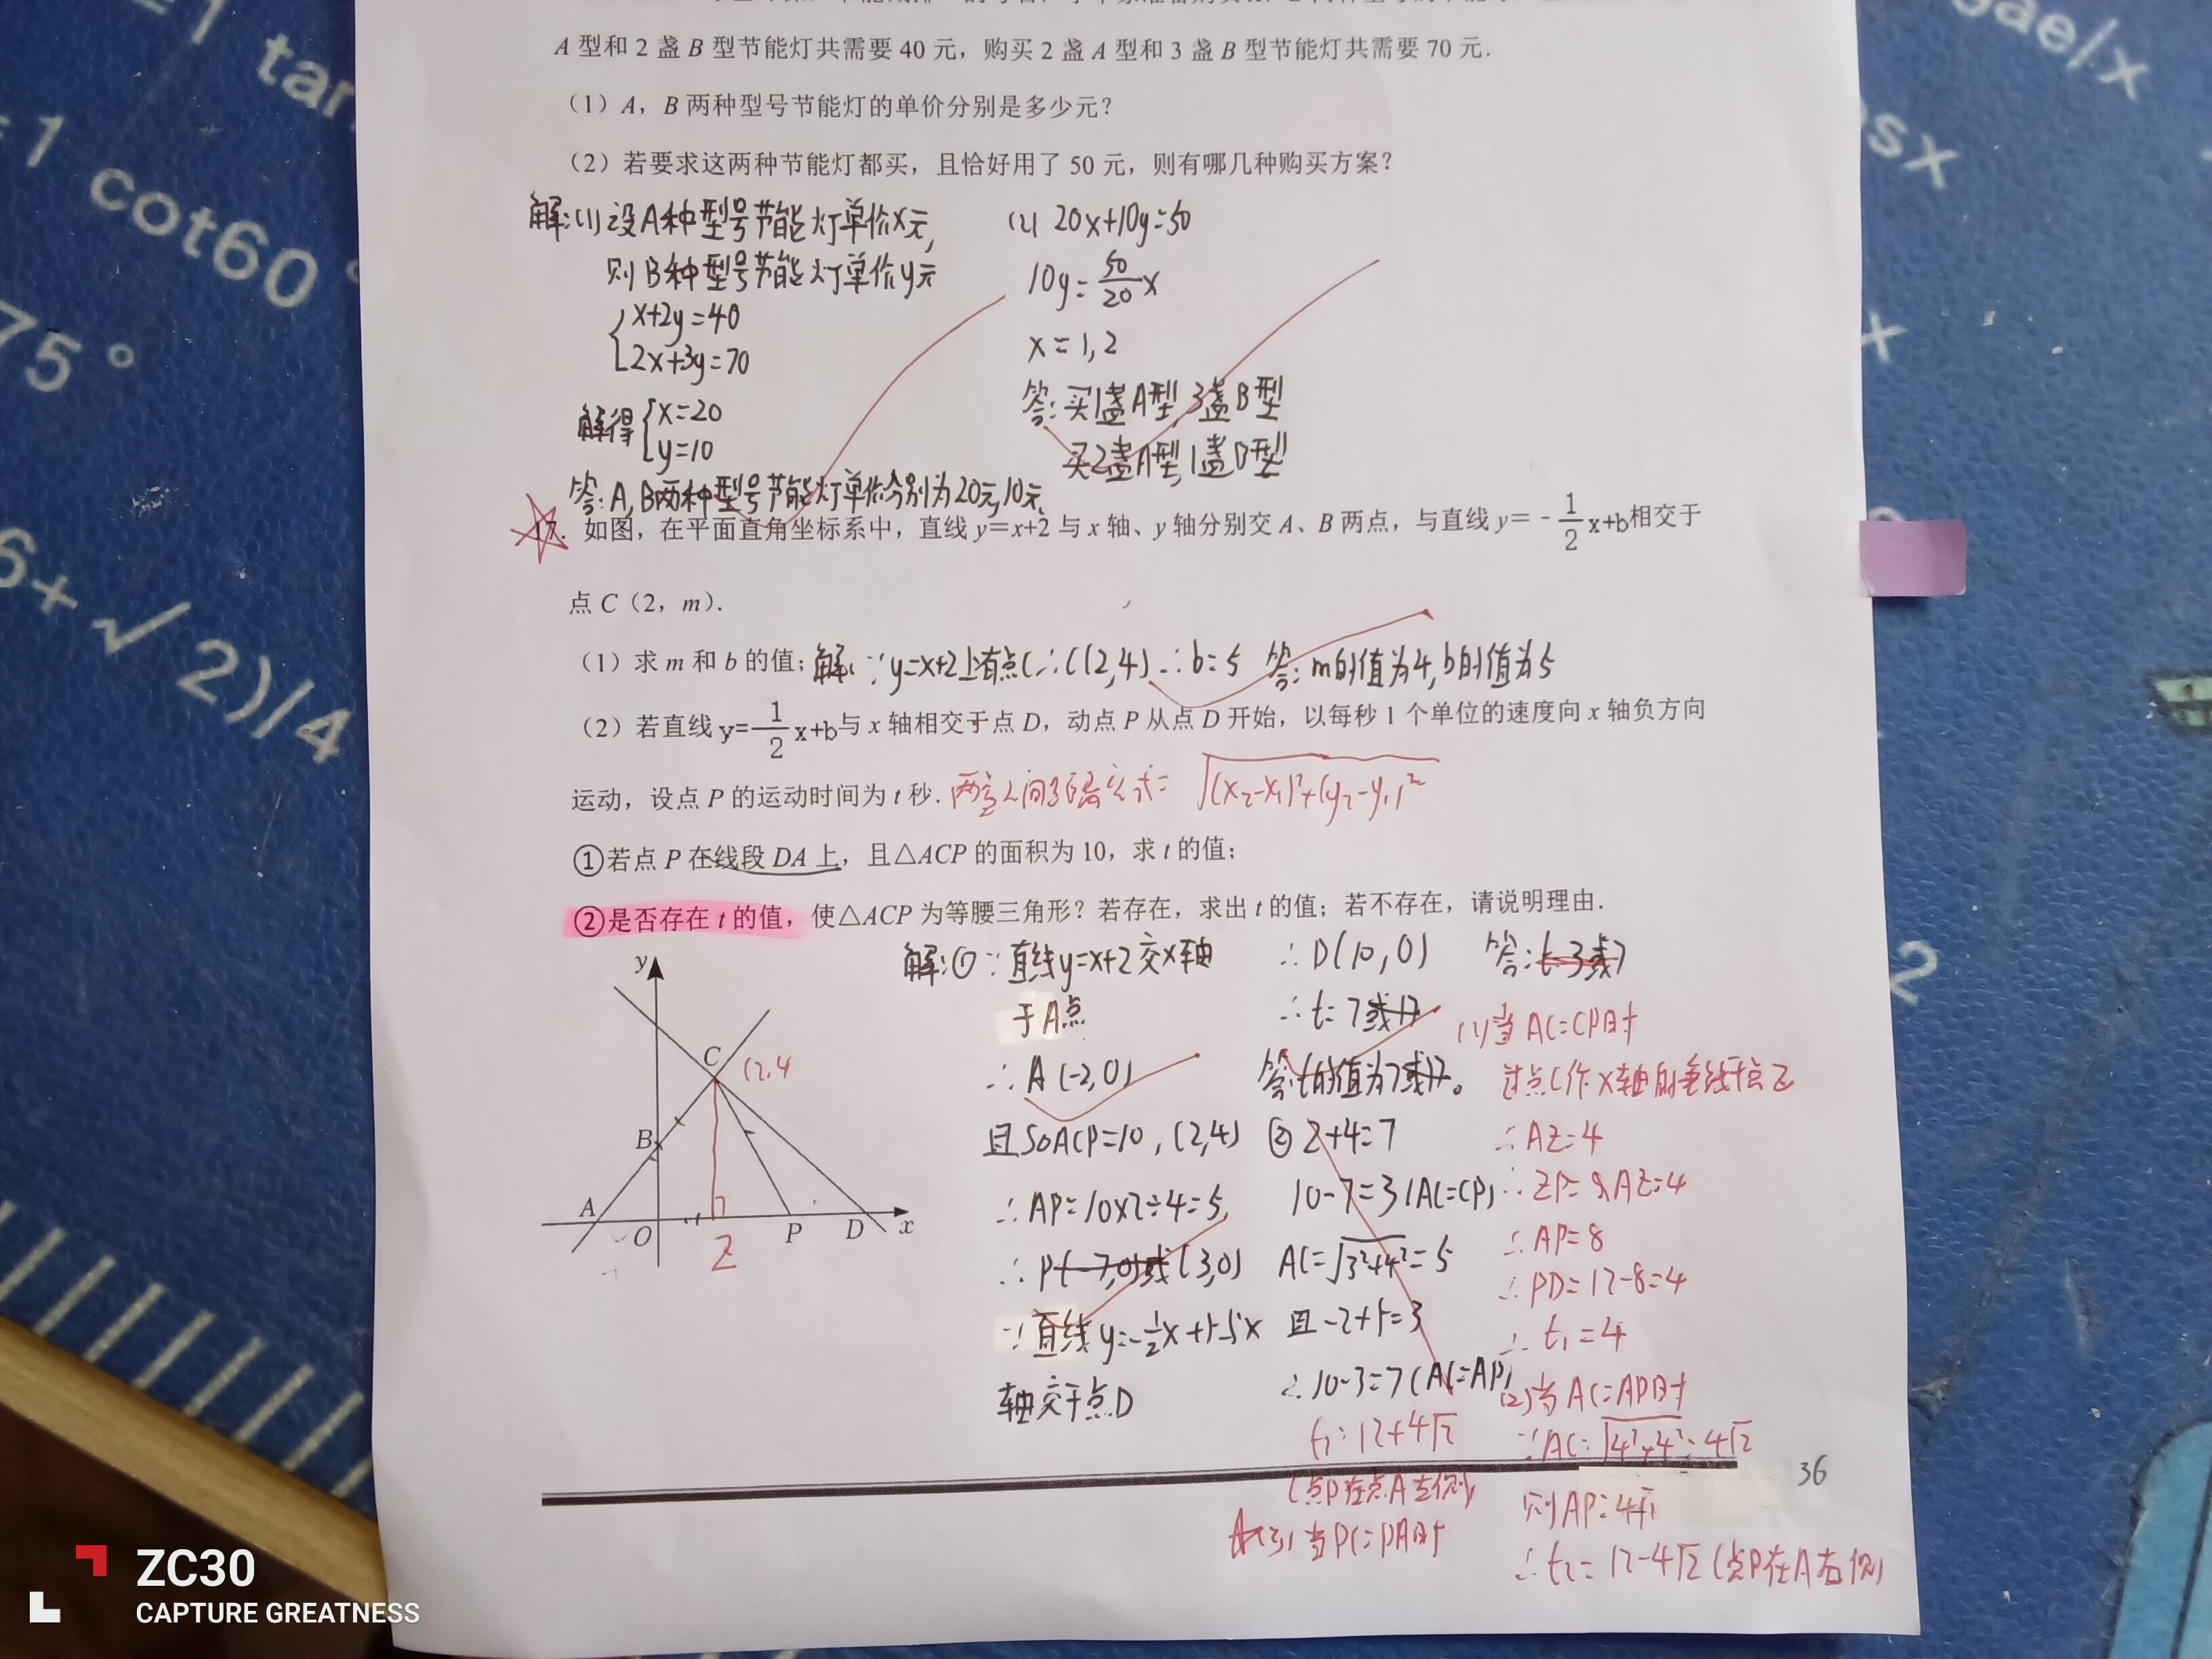 A 型和 2 盏 B 型节能灯共需要 40 元，购买 2 盏 A 型和 3 盏 B 型节能灯共需要 70 元．
（1）A，B 两种型号节能灯的单价分别是多少元？
（2）若要求这两种节能灯都买，且恰好用了 50 元，则有哪几种购买方案？
解:(1)设A种型号节能灯单价x元,
则B种型号节能灯单价y元
{x+2y=40
2x+3y=70
解得{x=20
y=10
答:A,B两种型号节能灯单价分别为20元,10元.
(2) 20x+10y=50
10y=50/20 x
x=1,2
答:买1盏A型,3盏B型
买2盏A型,1盏B型
17．如图，在平面直角坐标系中，直线 y＝x+2 与 x 轴、y 轴分别交 A、B 两点，与直线 y＝-1/2 x+b相交于
点 C（2，m）．
（1）求 m 和 b 的值；解:∵y=x+2上有点C∴C(2,4)∴b=5 答:m的值为4,b的值为5
（2）若直线 y=-1/2 x+b与 x 轴相交于点 D，动点 P 从点 D 开始，以每秒 1 个单位的速度向 x 轴负方向
运动，设点 P 的运动时间为 t 秒．两点之间距离公式=√(x₂-x₁)²+(y₂-y₁)²
①若点 P 在线段 DA 上，且△ACP 的面积为 10，求 t 的值；
②是否存在 t 的值，使△ACP 为等腰三角形？若存在，求出 t 的值；若不存在，请说明理由．
y
C (2,4
B
A
O
Z
P
D
x
解:①∵直线y=x+2交x轴
于A点
∴A(-2,0)
且S△ACP=10,(2,4)
∴AP=10×2÷4=5
∴P(-7,0)或(3,0)
∵直线y=-1/2x+5与x
轴交于点D
∴D(10,0)
∴t=7或17
答:t的值为7或17。
② 2+4=7
10-7=3(AC=CP)
AC=√3²+4²=5
且-2+5=3
∴10-3=7(AC=AP)
答:t 3或7
(1)当AC=CP时
过点C作x轴的垂线于点Z
∴AZ=4
∴ZP=AZ=4
∴AP=8
∴PD=12-8=4
∴t₁=4
(2)当AC=AP时
∵AC=√4²+4²=4√2
则AP=4√2
∴t₂=12-4√2(点P在A右侧)
t₃=12+4√2
(点P在点A左侧)
(3)当PC=PA时
36
ZC30
CAPTURE GREATNESS
1 tan
=1 cot60°
75°
6+√2)/4